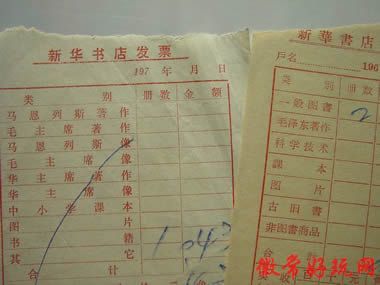 新华书店发票
197 年 月 日
类 别 册数 金 额
马恩列斯著作
毛主席著作
马恩列斯像
毛主席像
华主席著作
华主席像
中小学课本
图片
书籍 1
其它
合计
新華書店
戶名 196
类 别 册数
一般图書 2
毛泽东著作
科学技术
課本
图片
古旧書
非图書商品
合
微常好玩网